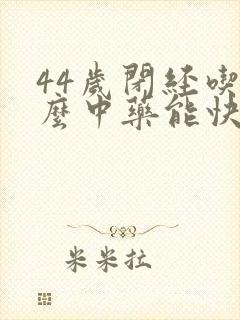 44歲閉経喫
麽中藥能快
米米拉